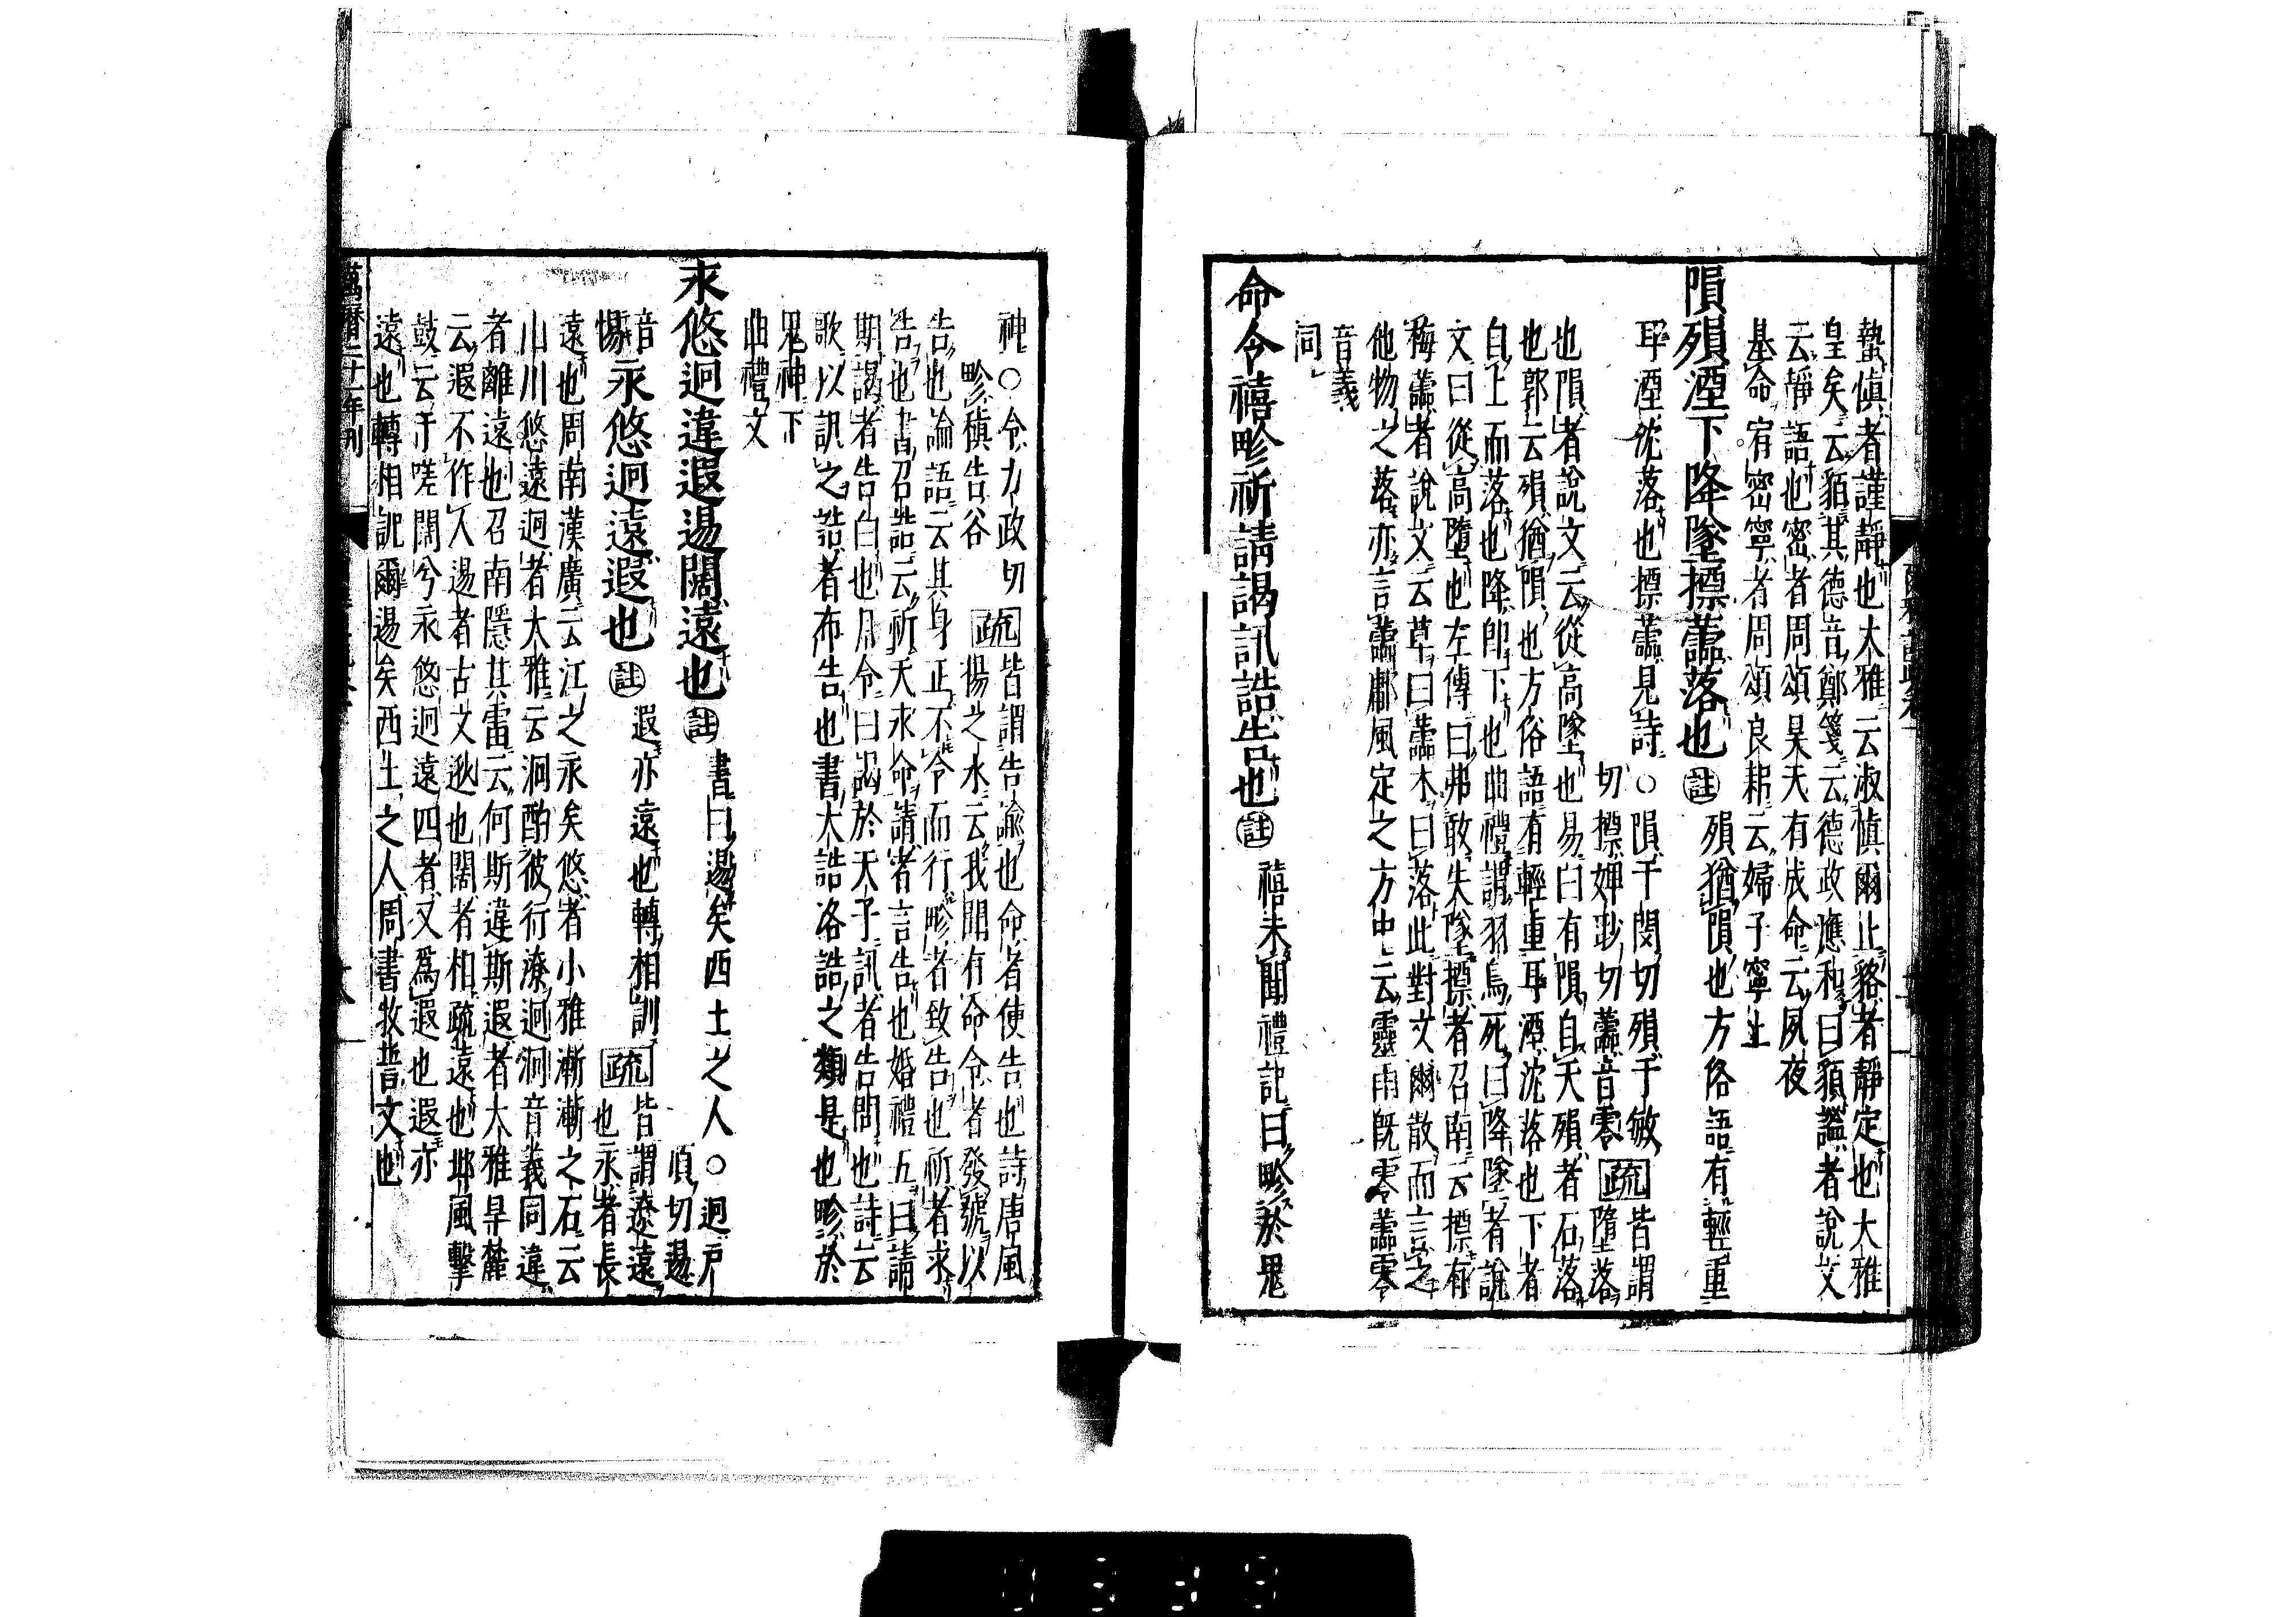 蟄慎者謹靜也大雅云淑慎爾止貉者靜定也大雅
皇矣云貊其德音鄭箋云德政應和曰貊謐者說文
云靜語也密者周頌昊天有成命云夙夜
基命宥密寧者周頌良耜云婦子寧止
隕殞湮下降墜摽蘦落也 註 殞猶隕也方俗語有輕重
耳湮沈落也摽蘦見詩○隕于閔切殞于敏
切摽婢眇切蘦音零 疏 皆謂墮落
也隕者說文云從高墜也易曰有隕自天殞者石落
也郭云殞猶隕也方俗語有輕重耳湮沈落也下者
自上而落也降卽下也曲禮謂羽鳥死曰降墜者說
文曰從高墮也左傳曰弗敢失墜摽者召南云摽有
梅蘦者說文云草曰蘦木曰落此對文爾散而言之
他物之落亦言蘦鄘風定之方中云靈雨旣零蘦零
音義
同
命令禧畛祈請謁訊誥告也 註 禧未聞禮記曰畛於鬼
神○令力政切
畛稹告谷 疏 皆謂告諭也命者使告也詩唐風
揚之水云我聞有命令者發號以
告也論語云其身正不令而行畛者致告也祈者求
告也書召誥云祈天永命請者言告也婚禮五曰請
期謁者告白也月令曰謁於天子訊者告問也詩云
歌以訊之誥者布告也書大誥洛誥之類是也畛於
鬼神下
曲禮文
永悠迥違遐逷闊遠也 註 書曰逷矣西土之人○迥戶
頂切逷
音惕
永悠迥遠遐也 註 遐亦遠也轉相訓 疏 皆謂遼遠
也永者長
遠也周南漢廣云江之永矣悠者小雅漸漸之石云
山川悠遠迥者大雅云泂酌彼行潦迥泂音義同違
者離遠也召南隱其雷云何斯違斯遐者大雅旱麓
云遐不作人逷者古文逖也闊者相疏遠也邶風擊
鼓云于嗟闊兮永悠迥遠四者又爲遐也遐亦
遠也轉相訓爾逷矣西土之人周書牧誓文也
萬曆二十一年刊